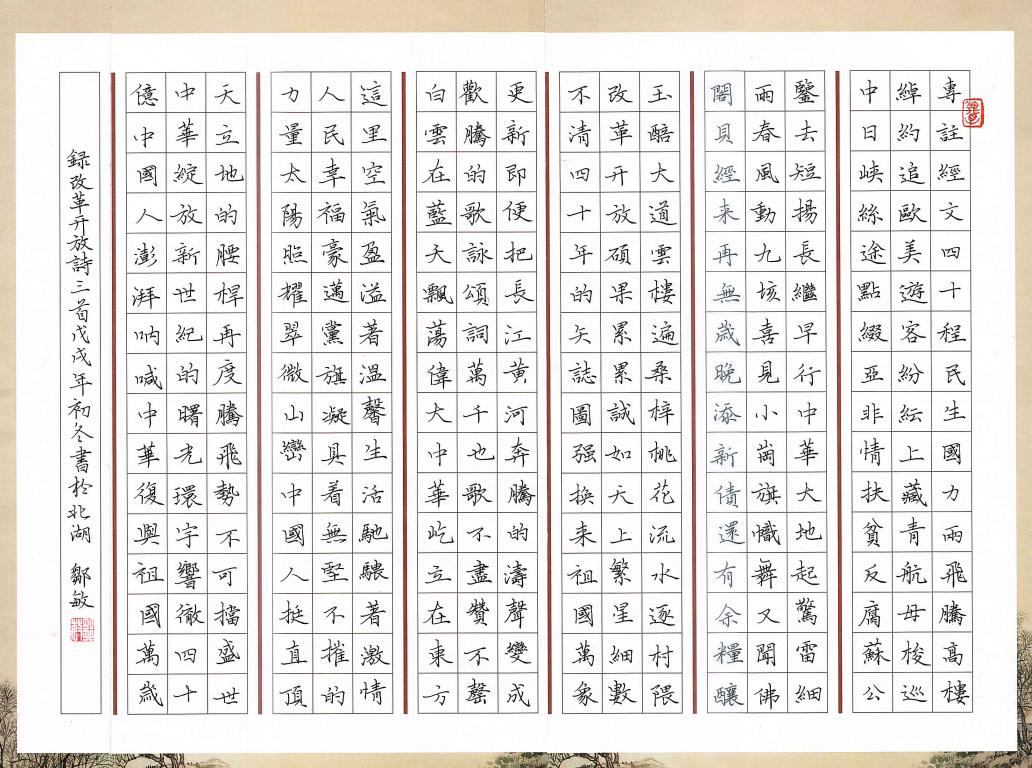 專註經文四十程民生國力兩飛騰高樓
綽約追歐美遊客紛紜上藏青航母梭巡
中日峽絲途點綴亞非情扶貧反腐蘇公
鑒去短揚長繼早行中華大地起驚雷細
雨春風動九垓喜見小崗旗幟舞又聞佛
閣貝經来再無歲晚添新債還有余糧釀
玉醅大道雲樓遍桑梓桃花流水逐村隈
改革开放碩果累累誠如天上繁星細數
不清四十年的矢誌圖强换来祖國萬象
更新即便把長江黄河奔騰的濤聲變成
歡騰的歌詠頌詞萬千也歌不盡贊不罄
白雲在藍天飄蕩偉大中華屹立在東方
這里空氣盈溢著溫馨生活馳騁著激情
人民幸福豪邁黨旗凝具着無堅不摧的
力量太陽照耀翠微山巒中國人挺直頂
天立地的腰桿再度騰飛勢不可擋盛世
中華綻放新世紀的曙光環宇響徹四十
億中國人澎湃吶喊中華復興祖國萬歲
録改革开放詩三首戊戌年初冬書於北湖 鄒敏